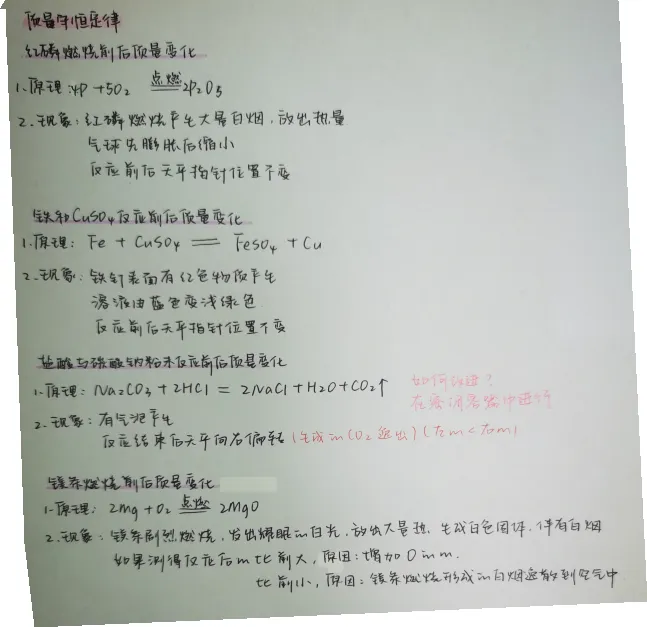 质量守恒定律
红磷燃烧前后质量变化
1.原理:4P+5O₂ 点燃══ 2P₂O₅
2.现象:红磷燃烧产生大量白烟,放出热量
气球先膨胀后缩小
反应前后天平指针位置不变
铁和CuSO₄反应前后质量变化
1.原理:Fe + CuSO₄ ══ FeSO₄ + Cu
2.现象:铁钉表面有红色物质产生
溶液由蓝色变浅绿色
反应前后天平指针位置不变
盐酸与碳酸钠粉末反应前后质量变化
1.原理:Na₂CO₃ + 2HCl = 2NaCl + H₂O + CO₂↑
如何改进?
在密闭容器中进行
2.现象:有气泡产生
反应结束后天平向右偏转(生成的CO₂逸出)(左m<右m)
镁条燃烧前后质量变化
1.原理:2mg + O₂ 点燃══ 2MgO
2.现象:镁条剧烈燃烧,发出耀眼的白光,放出大量热,生成白色固体,伴有白烟
如果测得反应后m比前大,原因:增加O的m.
比前小,原因:镁条燃烧形成的白烟逸散到空气中